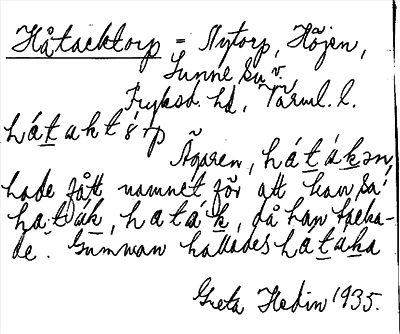 Håtacktorp = Nytorp, Höjen,
Sunne sn v.
Fryksd. hd, Värml. l.
hátakt8rp
Ägaren, hátákən,
hade fått namnet för att han sa'
haták, haták, då han tacka-
de. Gumman kallades hataka
Greta Hedin 1935.